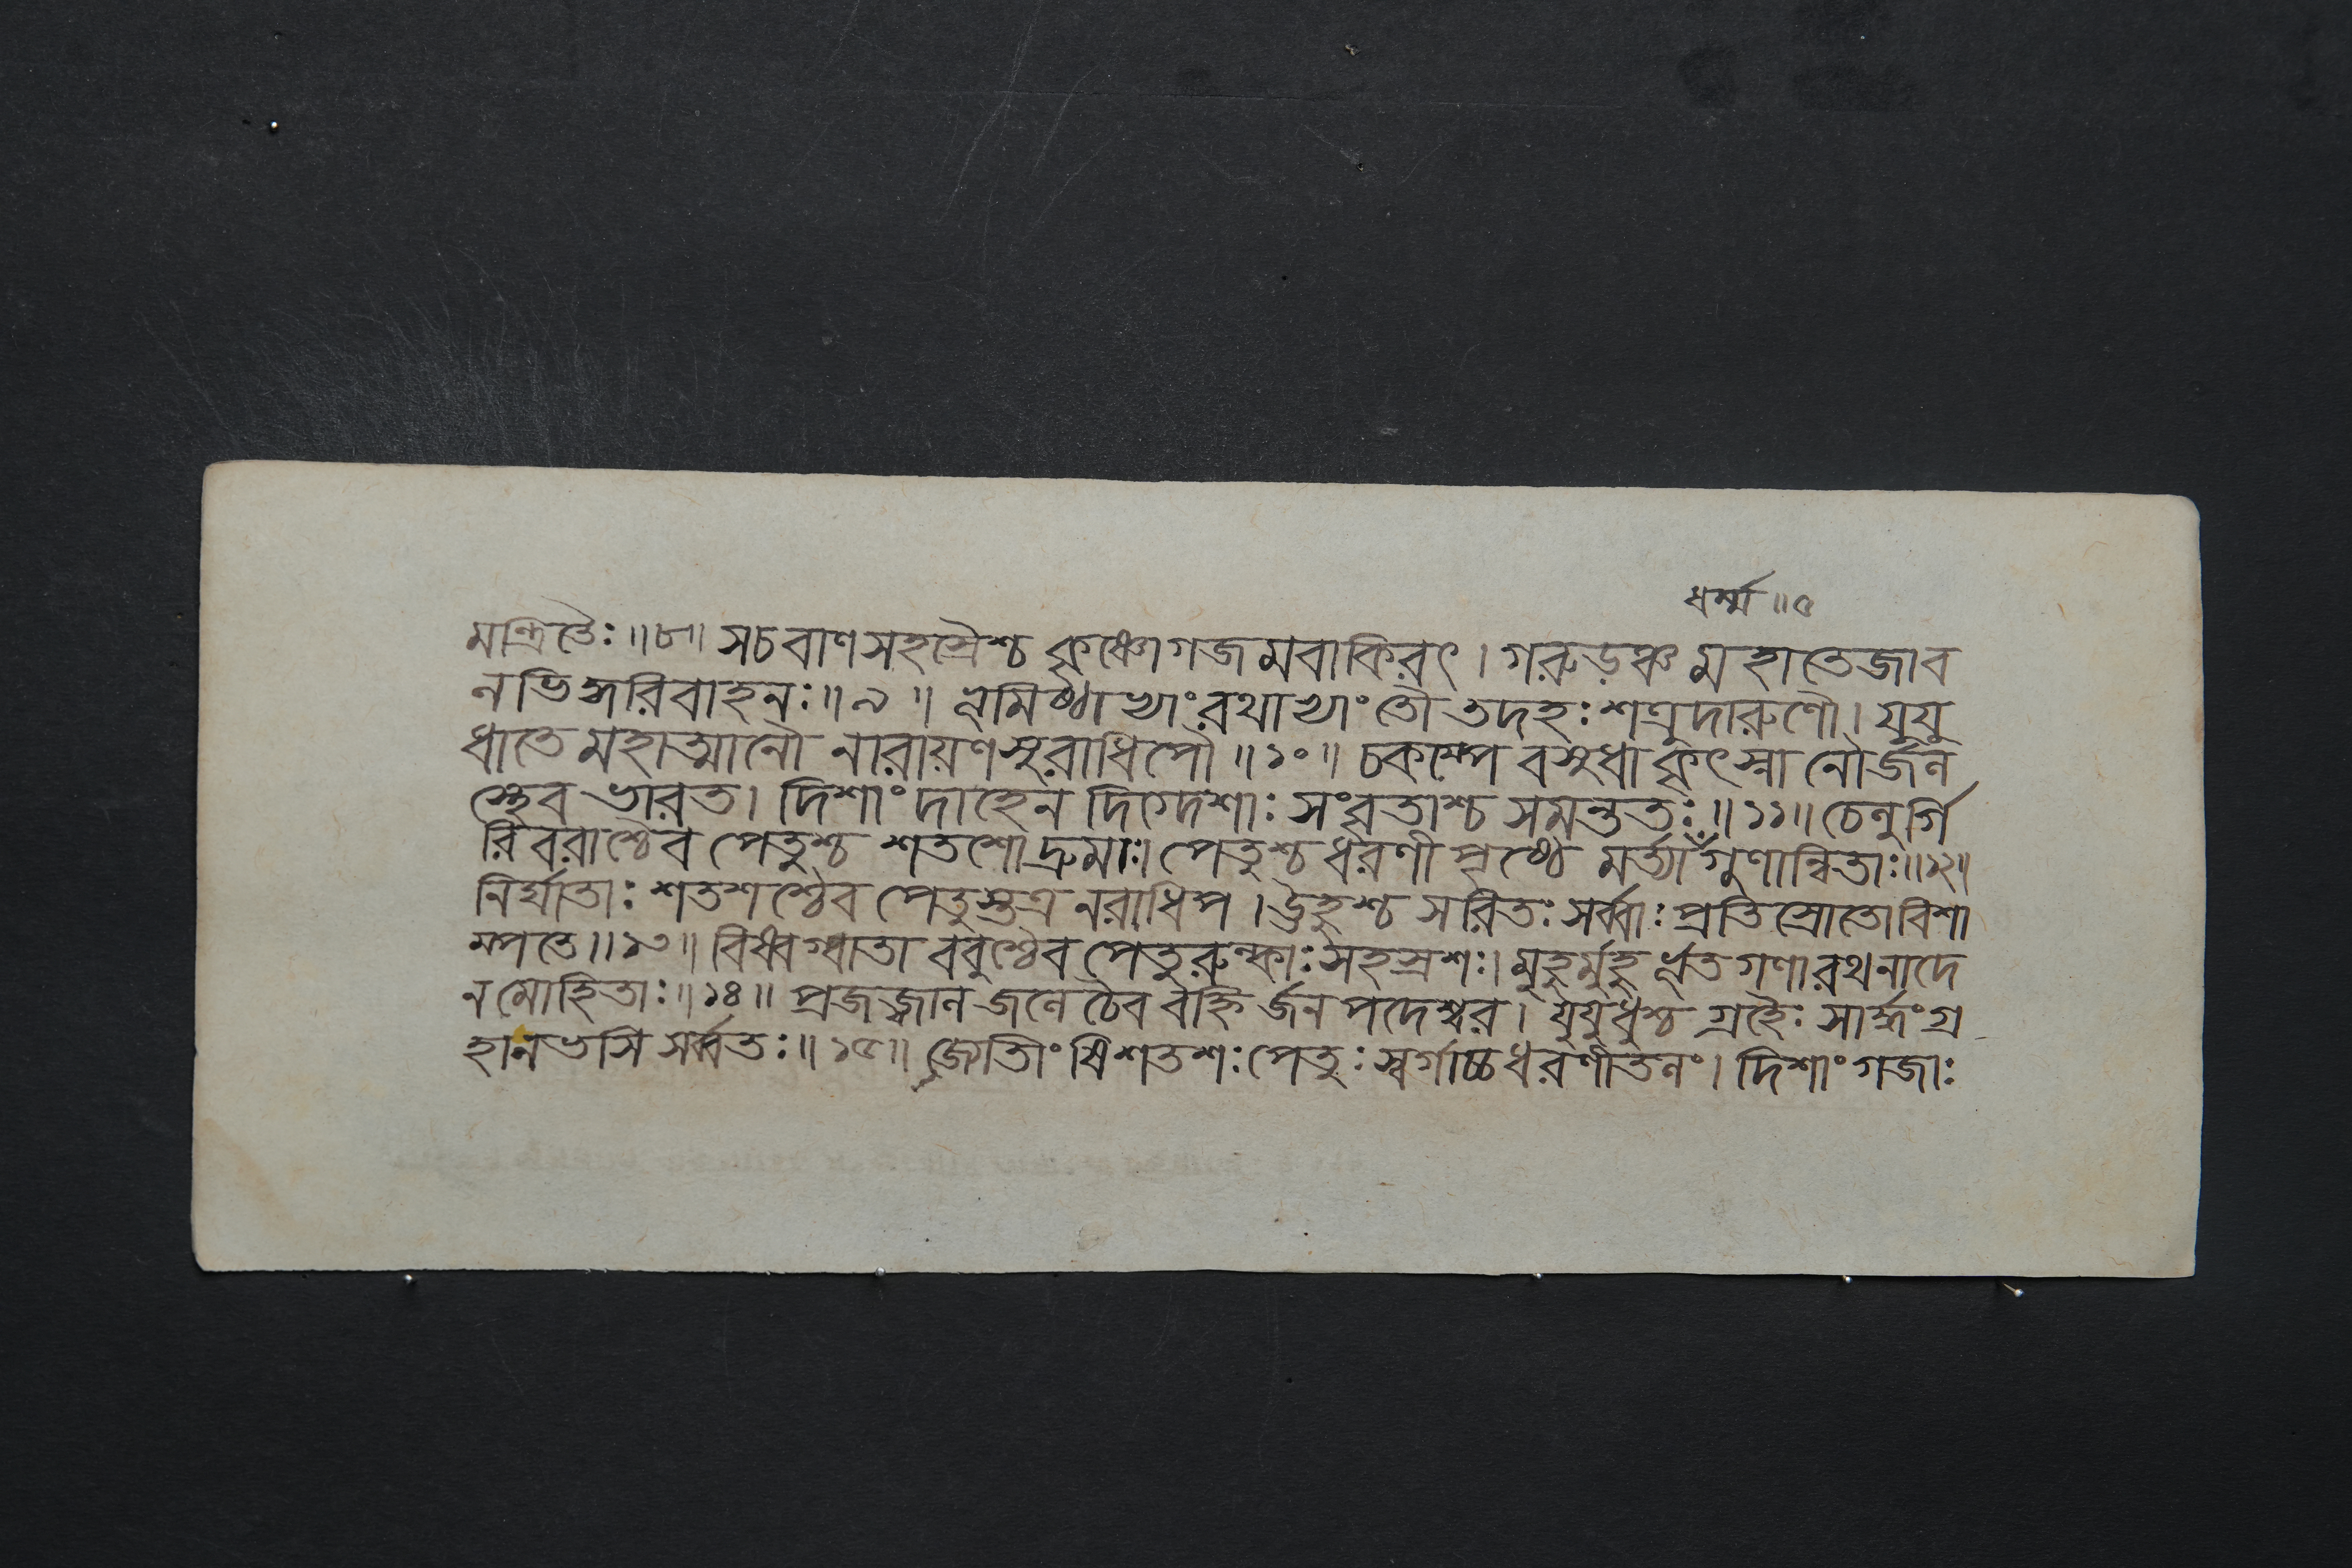 ধর্ম্ম ॥ ৫
মন্ত্রিতৈঃ ॥ ৮ ॥ স চ বাণসহস্রৈশ্চ কৃষ্ণো গজমবাকিরৎ । গরুড়ঞ্চ মহাতেজা ব
লভিদ্ধরিবাহনঃ ॥ ৯ ॥ ভূমিষ্ঠাভ্যাং রথাভ্যাং তৌ তদহঃ শত্রুদারুণৌ । যুযু
ধাতে মহাত্মানৌ নারায়ণসুরাধিপৌ ॥ ১০ ॥ চকম্পে বসুধা কৃৎস্না নৌর্জল
স্থেব ভারত । দিশাং দাহেন দিগ্দেশাঃ সংবৃতাশ্চ সমন্ততঃ ॥ ১১ ॥ চেলুর্গি
রিবরাশ্চৈব পেতুশ্চ শতশো দ্রুমাঃ । পেতুশ্চ ধরণীপৃষ্ঠে মর্ত্যা গুণান্বিতাঃ ॥ ১২ ॥
নির্ঘাতাঃ শতশশ্চৈব পেতুস্তত্র নরাধিপ । ঊহুশ্চ সরিতঃ সর্ব্বাঃ প্রতিস্রোতো বিশা
ম্পতে ॥ ১৩ ॥ বিষ্বগ্বাতা ববুশ্চৈব পেতুরুল্কাঃ সহস্রশঃ । মুহুর্মুহুর্ভূতগণা রথনাদে
ন মোহিতাঃ ॥ ১৪ ॥ প্রজজ্বাল জলে চৈব বহ্নির্জনপদেশ্বর । যুযুধুশ্চ গ্রহৈঃ সার্দ্ধং গ্র
হা নভসি সর্ব্বতঃ ॥ ১৫ ॥ জ্যোতীংষি শতশঃ পেতুঃ স্বর্গাচ্চ ধরণীতলং । দিশাং গজাঃ